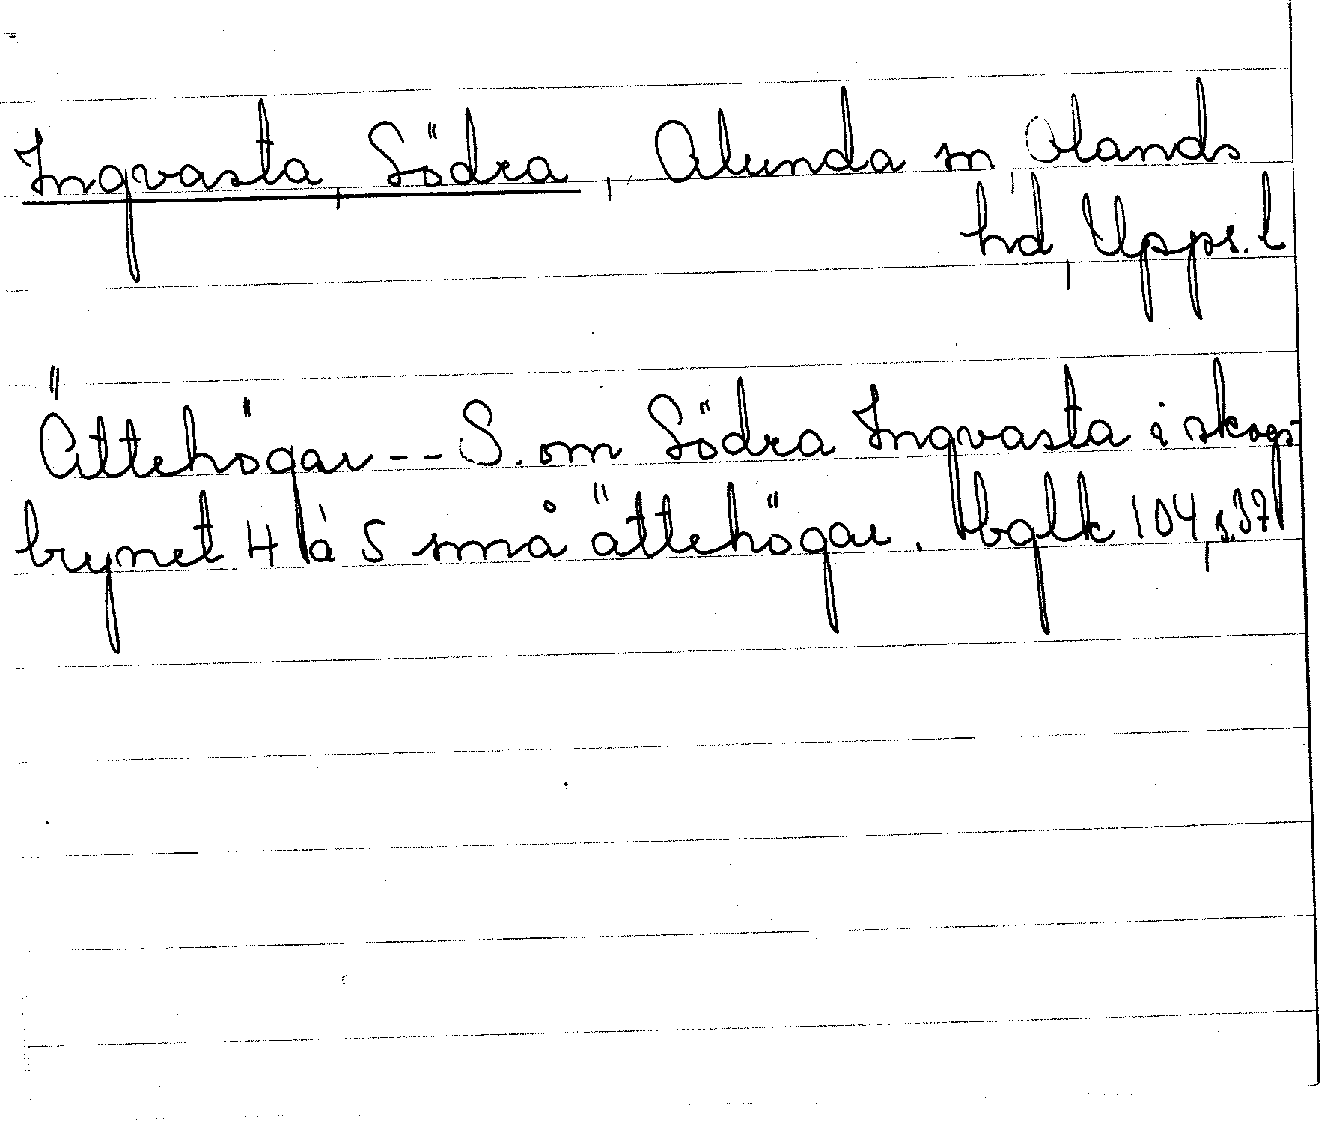 Ingvasta, Södra, Alunda sn Olands
hd, Upps. l
Ättehögar -- S. om Södra Ingvasta i skogs-
brynet 4 à 5 små ättehögar. bglk 104, s. 37